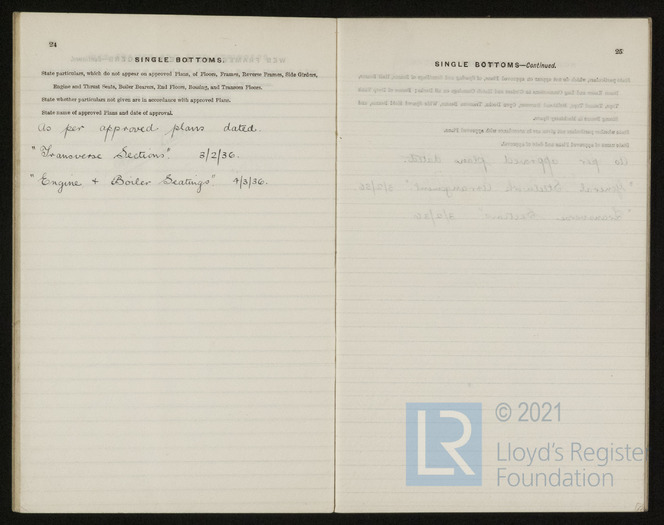 24
SINGLE BOTTOMS.
State particulars, which do not appear on approved Plans, of Floors, Frames, Reverse Frames, Side Girders,
Engine and Thrust Seats, Boiler Bearers, End Floors, Bossing, and Transom Floors.
State whether particulars not given are in accordance with approved Plans.
State name of approved Plans and date of approval.
As per approved plans dated.
"Transverse Sections". 3/2/36.
"Engine + Boiler Seatings" 4/3/36.
25
SINGLE BOTTOMS—Continued.
LR
© 2021
Lloyd's Register
Foundation